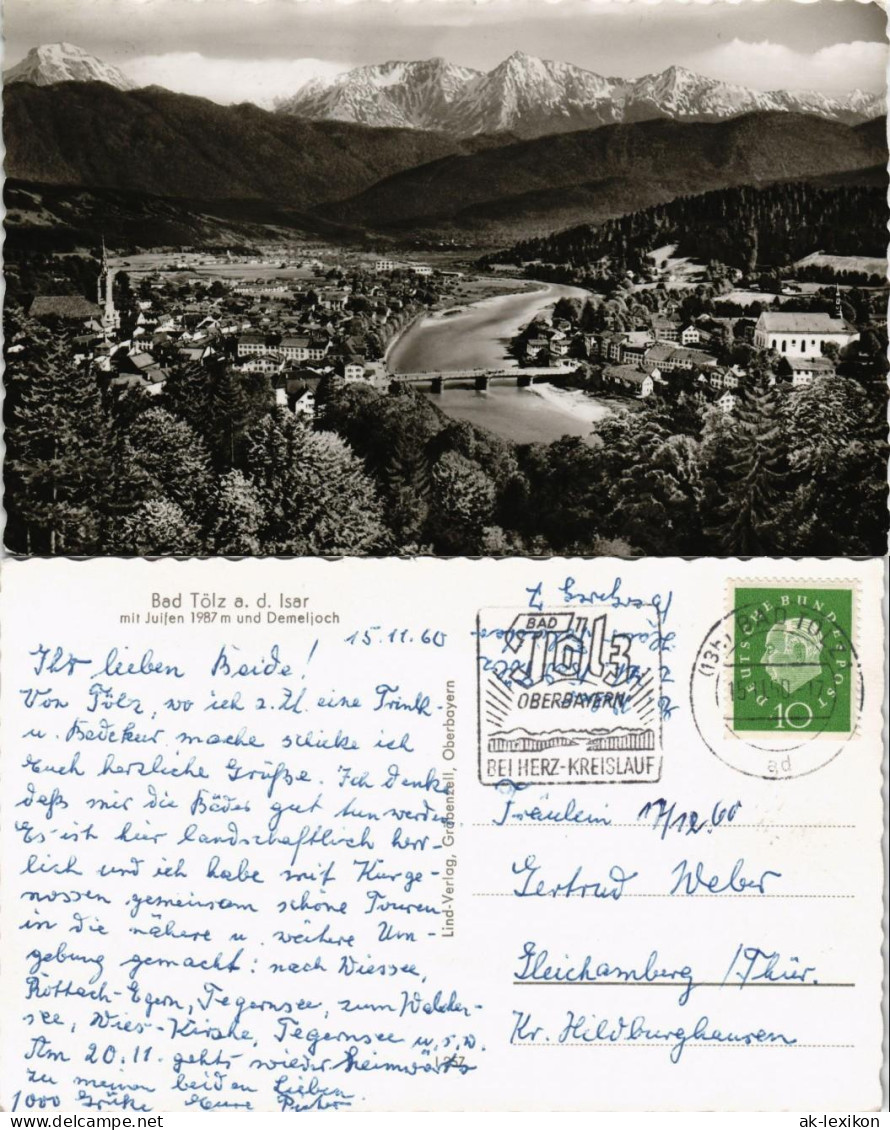 Bad Tölz a. d. Isar
mit Juifen 1987 m und Demeljoch
15.11.60
Ihr lieben Beide!
Von Tölz, wo ich z. Zt. eine Trink-
u. Badekur mache schicke ich
Euch herzliche Grüße. Ich denke
daß mir die Bäder gut tun werden.
Es ist hier landschaftlich herr-
lich und ich habe mit Kurge-
nossen gemeinsam schöne Touren
in die nähere u. weitere Um-
gebung gemacht: nach Wiessee,
Rottach-Egern, Tegernsee, zum Walchen-
see, Wies-Kirche, Tegernsee u.s.w.
Am 20.11. gehts wieder heimwärts
zu meinen beiden Lieben.
1000 Grüße Eure
Lind-Verlag, Grabenzell, Oberbayern
L 257
BAD
Tölz
OBERBAYERN
BEI HERZ-KREISLAUF
(13b) BAD TÖLZ
ad
DEUTSCHE BUNDESPOST
10
Fräulein 17/12.60
Gertrud Weber
Gleichamberg /Thür.
Kr. Hildburghausen
ak-lexikon